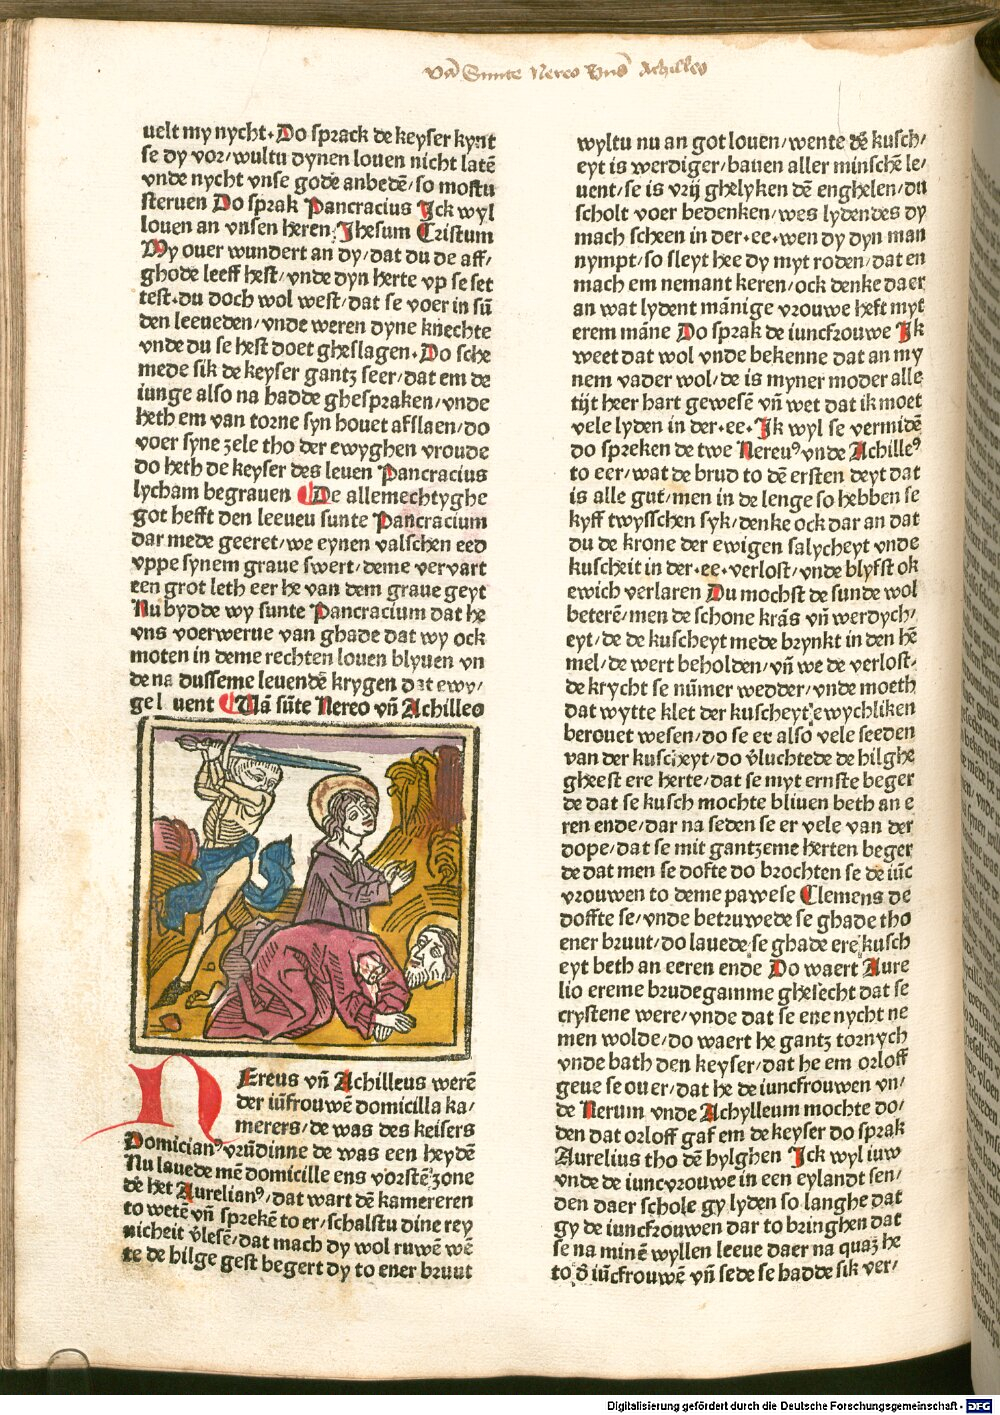 Vā Sunte Nereo Vnd Achilleo
uelt my nycht. Do sprack de keyser kynt
se dy vor/wultu dynen louen nicht latē
vnde nycht vnse gode anbedē/so mostu
steruen Do sprak Pancracius Jck wyl
louen an vnsen heren Jhesum Cristum
My ouer wundert an dy/dat du de aff/
ghode leeff hest/vnde dyn herte vp se set
test. du doch wol west/dat se voer in sū
den leeueden/vnde weren dyne knechte
vnde du se hest doet gheslagen. Do sche
mede sik de keyser gantz seer/dat em de
iunge also na hadde ghespraken/vnde
heth em van torne syn houet afslaen/do
voer syne zele tho der ewyghen vroude
do heth de keyser des leuen Pancracius
lycham begrauen De allemechtyghe
got hefft den leeueu sunte Pancracium
dar mede geeret/we eynen valschen eed
vppe synem graue swert/deme vervart
een grot leth eer he van dem graue geyt
Nu bydde wy sunte Pancracium dat he
vns voerwerue van ghade dat wy ock
moten in deme rechten louen blyuen vn
de na dusseme leuendē krygen dat ewy/
ge l uent Uā sūte Nereo vn̄ Achilleo
NEreus vn̄ Achilleus werē
der iūfrouwē domicilla ka/
merers/de was des keisers
Domician⁹ vrūdinne de was een heydē
Nu lauede mē domicille ens vorstē zone
de het Aurelian⁹/dat wart dē kamereren
to wetē vn̄ sprekē to er/schalstu dine rey
nicheit v̄lesē/dat mach dy wol ruwē wē
te de hilge gest begert dy to ener bruut
wyltu nu an got louen/wente dē kusch/
eyt is werdiger/bauen aller minschē le/
uent/se is vrij ghelyken dē enghelen/du
scholt voer bedenken/wes lydendes dy
mach scheen in der.ee.wen dy dyn man
nympt/so sleyt hee dy myt roden/dat en
mach em nemant keren/ock denke daer
an wat lydent mānige vrouwe heft myt
erem māne Do sprak de iuncfrouwe Jk
weet dat wol vnde bekenne dat an my
nem vader wol/de is myner moder alle
tijt heer hart gewesē vn̄ wet dat ik moet
vele lyden in der.ee. Jk wyl se vermidē
do spreken de twe Nereu⁹ vnde Achille⁹
to eer/wat de brud to dē ersten deyt dat
is alle gut/men in de lenge so hebben se
kyff twysschen syk/denke ock dar an dat
du de krone der ewigen salycheyt vnde
kuscheit in der.ee.verlost/vnde blyfst ok
ewich verlaren Du mochst de sunde wol
beterē/men de schone krās vn̄ werdych/
eyt/de de kuscheyt mede brynkt in den hē
mel/de wert beholden/vn̄ we de verlost.
de krycht se nūmer wedder/vnde moeth
dat wytte klet der kuscheyt ewychliken
berouet wesen/do se er also vele seeden
van der kuscheyt/do v̄luchtede de hilghe
gheest ere herte/dat se myt ernste beger
de dat se kusch mochte bliuen beth an e
ren ende/dar na seden se er vele van der
dope/dat se mit gantzeme herten beger
de dat men se dofte do brochten se de iūc
vrouwen to deme pawese Clemens de
doffte se/vnde betzuwede se ghade tho
ener bruut/do lauede se ghade ere kusch
eyt beth an eeren ende Do waert Aure
lio ereme brudegamme ghesecht dat se
crystene were/vnde dat se ene nycht ne
men wolde/do waert he gantz tornych
vnde bath den keyser/dat he em orloff
geue se ouer/dat he de iuncfrouwen vn/
de Nerum vnde Achylleum mochte do/
den dat orloff gaf em de keyser do sprak
Aurelius tho dē hylghen Jck wyl iuw
vnde de iuncvrouwe in een eylandt sen/
den daer schole gy lyden so langhe dat
gy de iuncfrouwen dar to bringhen dat
se na minē wyllen leeue daer na quaz he
to d̄ iūcfrouwē vn̄ sede se hadde sik ver/
Digitalisierung gefördert durch die Deutsche Forschungsgemeinschaft - DFG